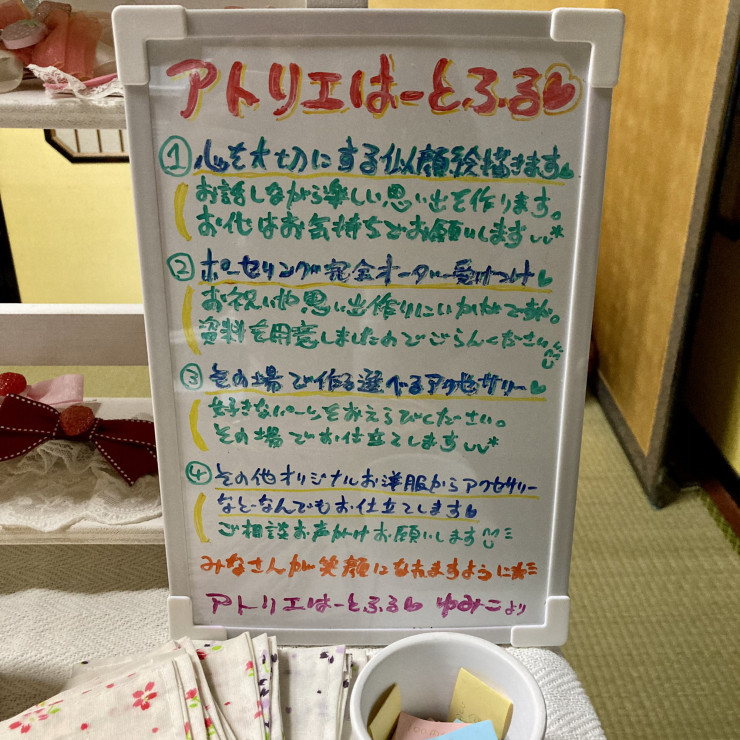 アトリエはーとふる
① 心を大切にする似顔絵描きます
お話しながら楽しい思い出を作ります。
お代はお気持ちでお願いします
② ポーセリング完全オーダー受けつけ
お祝いや思い出作りにいかがですか。
資料を用意しましたのでごらんください
③ その場で作る選べるアクセサリー
好きなパーツをおえらびください。
その場でお仕立てします
④ その他オリジナルお洋服からアクセサリー
などなんでもお仕立てします
ご相談お声がけお願いします
みなさんが笑顔になれますように
アトリエはーとふる ゆみこより